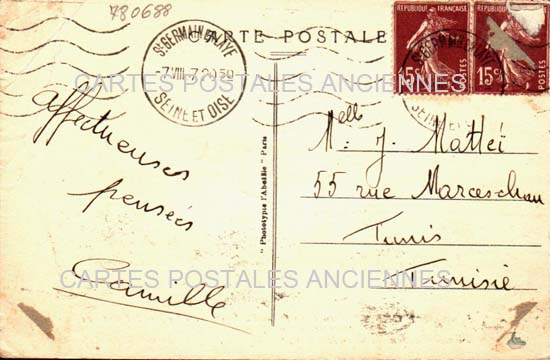 780688
CARTE POSTALE
ST GERMAIN EN LAYE
7 VIII-7 20 30
SEINE ET OISE
REPUBLIQUE FRANÇAISE
15c
POSTES
REPUBLIQUE
15c
POSTES
CARTES POSTALES ANCIENNES
Affectueuses
pensées
Camille
" Phototypie l'Abeille " Paris
Melle
M. J. Matteï
55 rue Marceschau
Tunis
Tunisie
CARTES POSTALES ANCIENNES